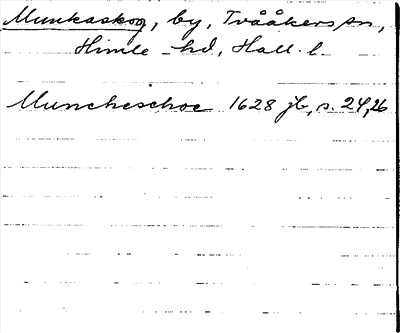 Munkaskog, by, Tvååkers sn,
Himle hd, Hall. l.
Muncheschoe 1628 jb, s. 24, 26